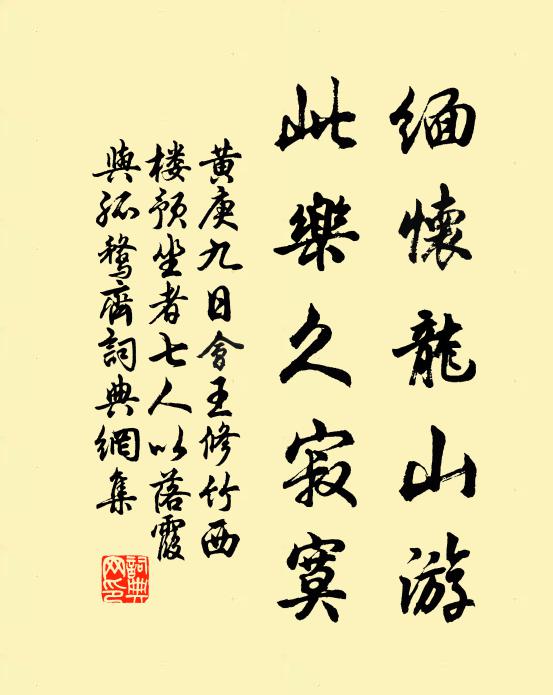 緬懷龍山游
此樂久寂寞
黄庚九日會王修竹西
楼預坐者七人以落霞
與孤鶩齊詞典網集
詞典网印